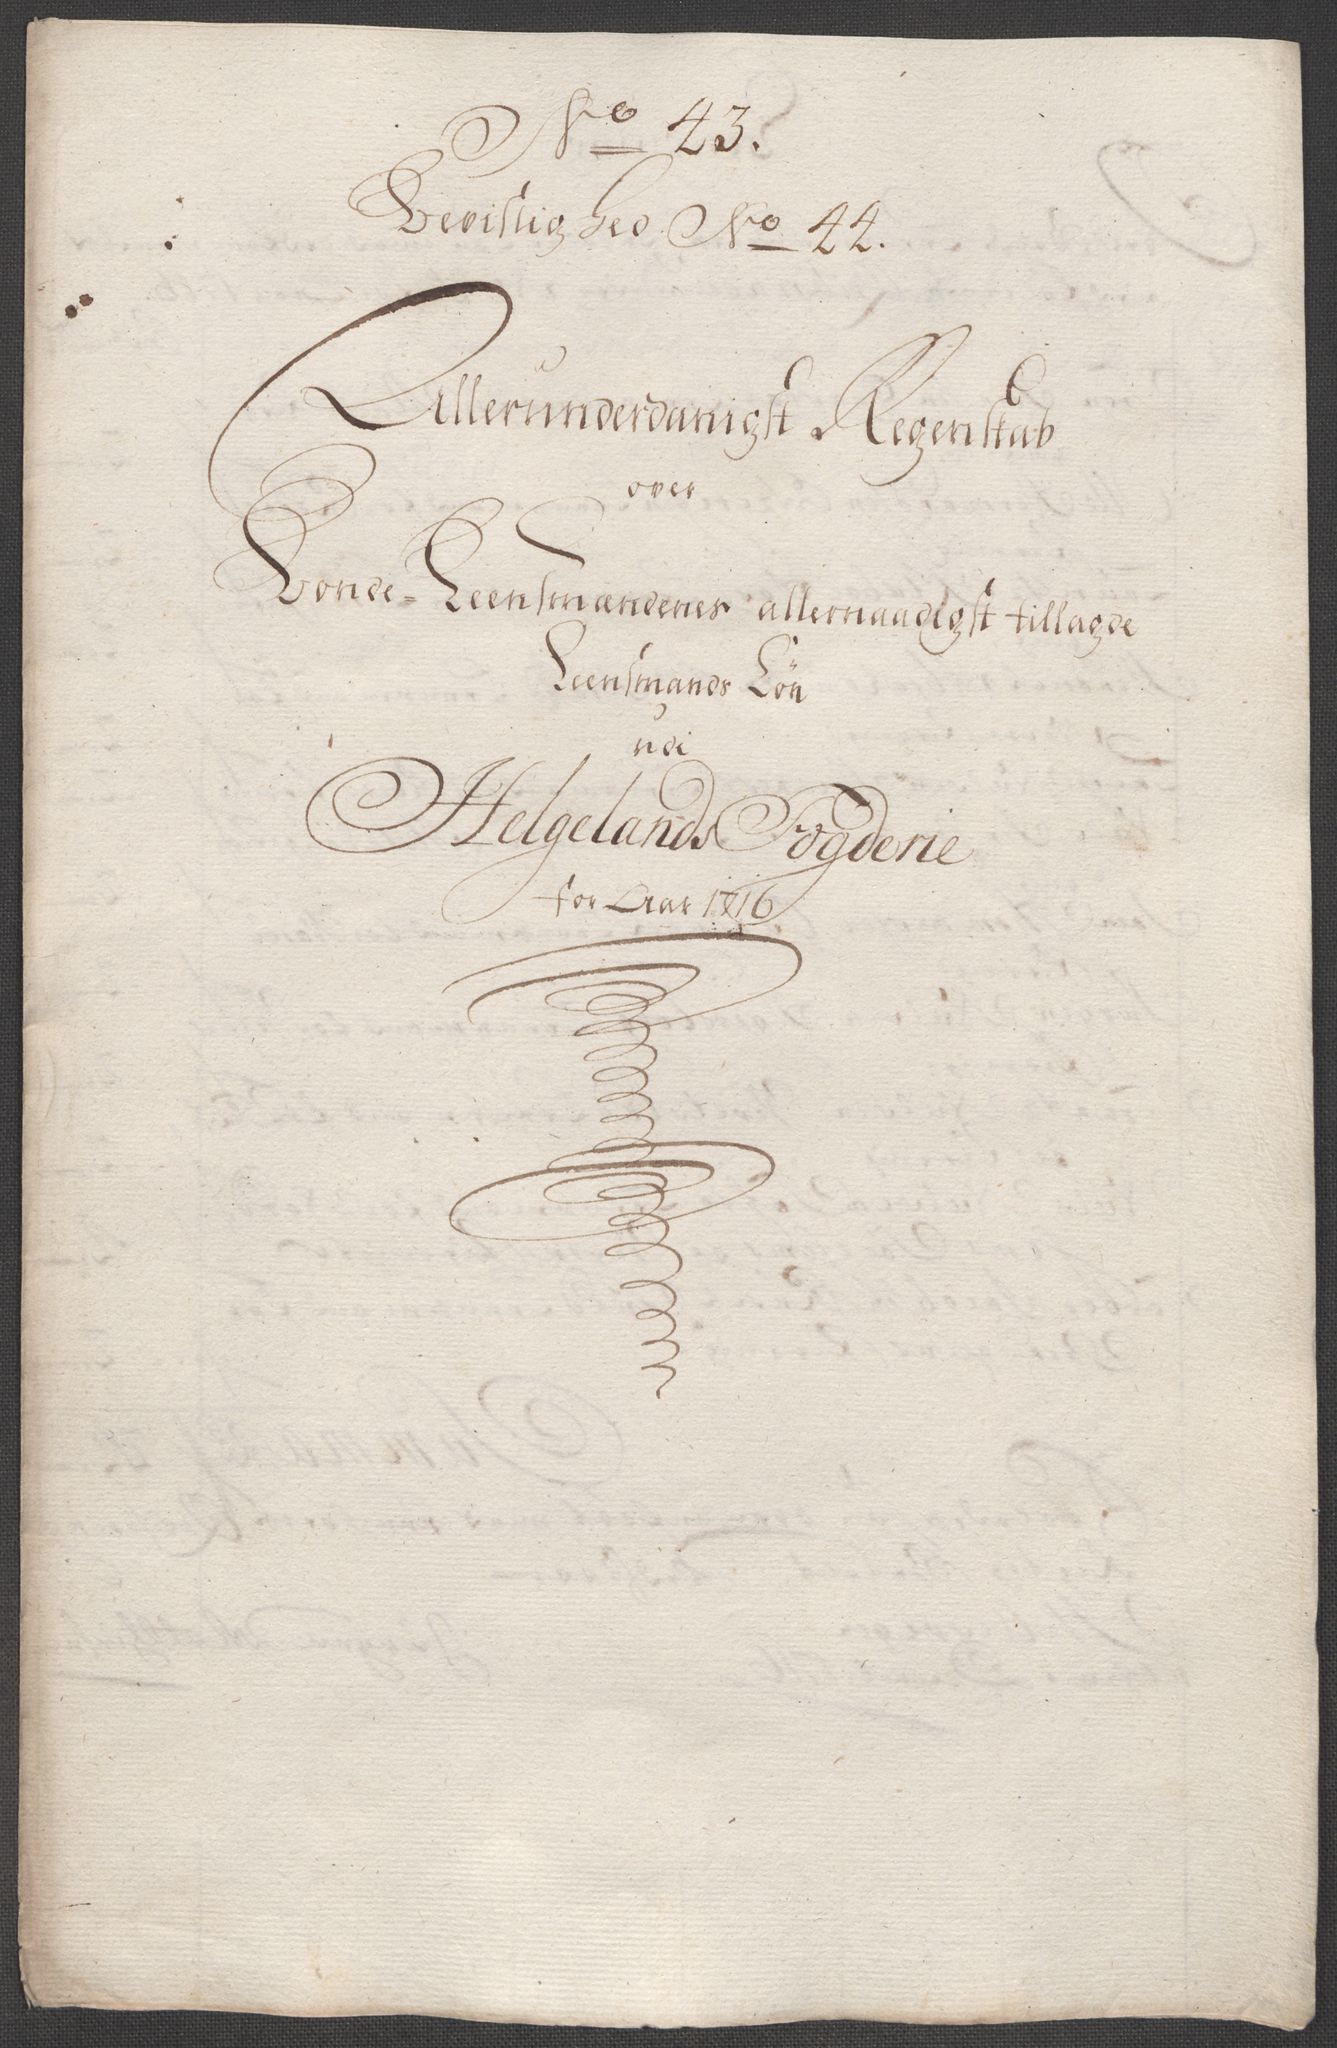 No 43.
Bevistighed No 44.
Allerunderdanigst Regenskab
over
Bonde-Leensmændenes allernaadigst tillagde
Leensmands Lön
udi
Helgelands Fogderie
for Aar 1716